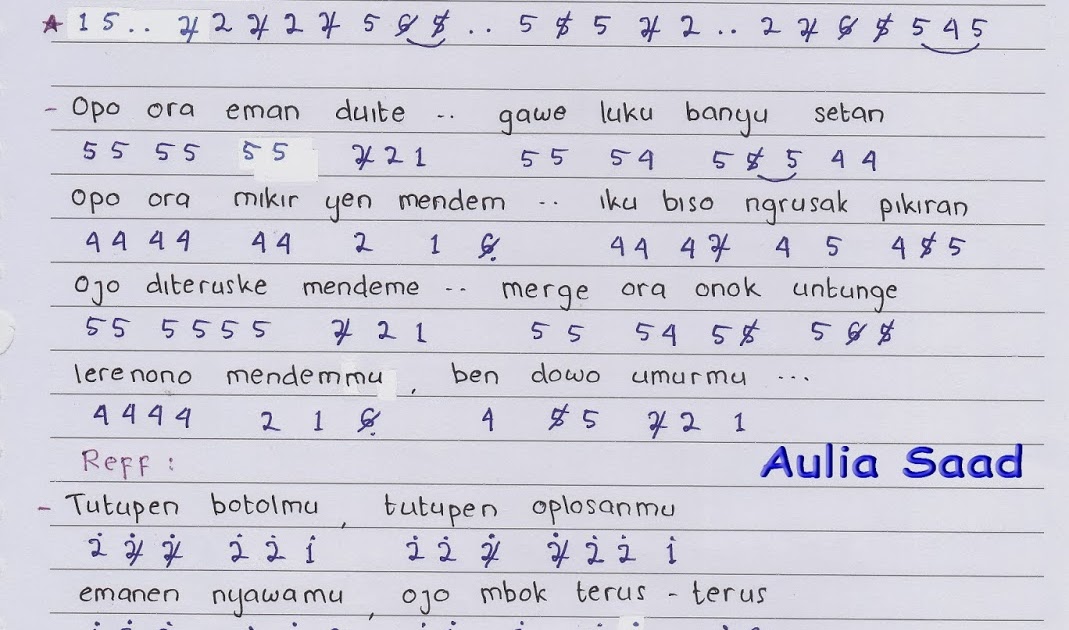 ★ 1 5 . . 2̸ 2 2̸ 2 2̸ 5 6̸ 5̸ . . 5 5̸ 5 2̸ 2 . . 2 2̸ 6̸ 5̸ 5 4 5
- Opo ora eman duite .. gawe luku banyu setan
5 5 5 5 5 5 2̸ 2 1 5 5 5 4 5 5̸ 5 4 4
Opo ora mikir yen mendem .. iku biso ngrusak pikiran
4 4 4 4 4 4 2 1 6̸̣ 4 4 4 2̸ 4 5 4 5̸ 5
Ojo diteruske mendeme .. merge ora onok untunge
5 5 5 5 5 5 2̸ 2 1 5 5 5 4 5 5̸ 5 6̸ 5̸
lerenono mendemmu , ben dowo umurmu ...
4 4 4 4 2 1 6̸̣ 4 5̸ 5 2̸ 2 1
Reff :
Aulia Saad
- Tutupen botolmu , tutupen oplosanmu
2̇ 2̸̇ 2̸̇ 2̇ 2̇ 1̇ 2̇ 2̇ 2̸̇ 2̸̇ 2̇ 2̇ 1̇
emanen nyawamu , ojo mbok terus - terus